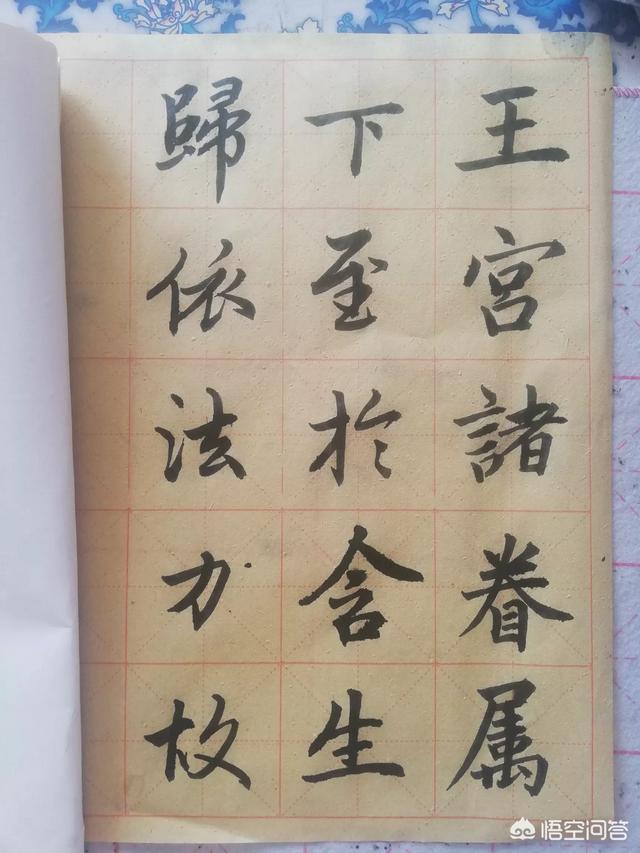 王宫諸眷属
下至於含生
歸依法力故
悟空问答